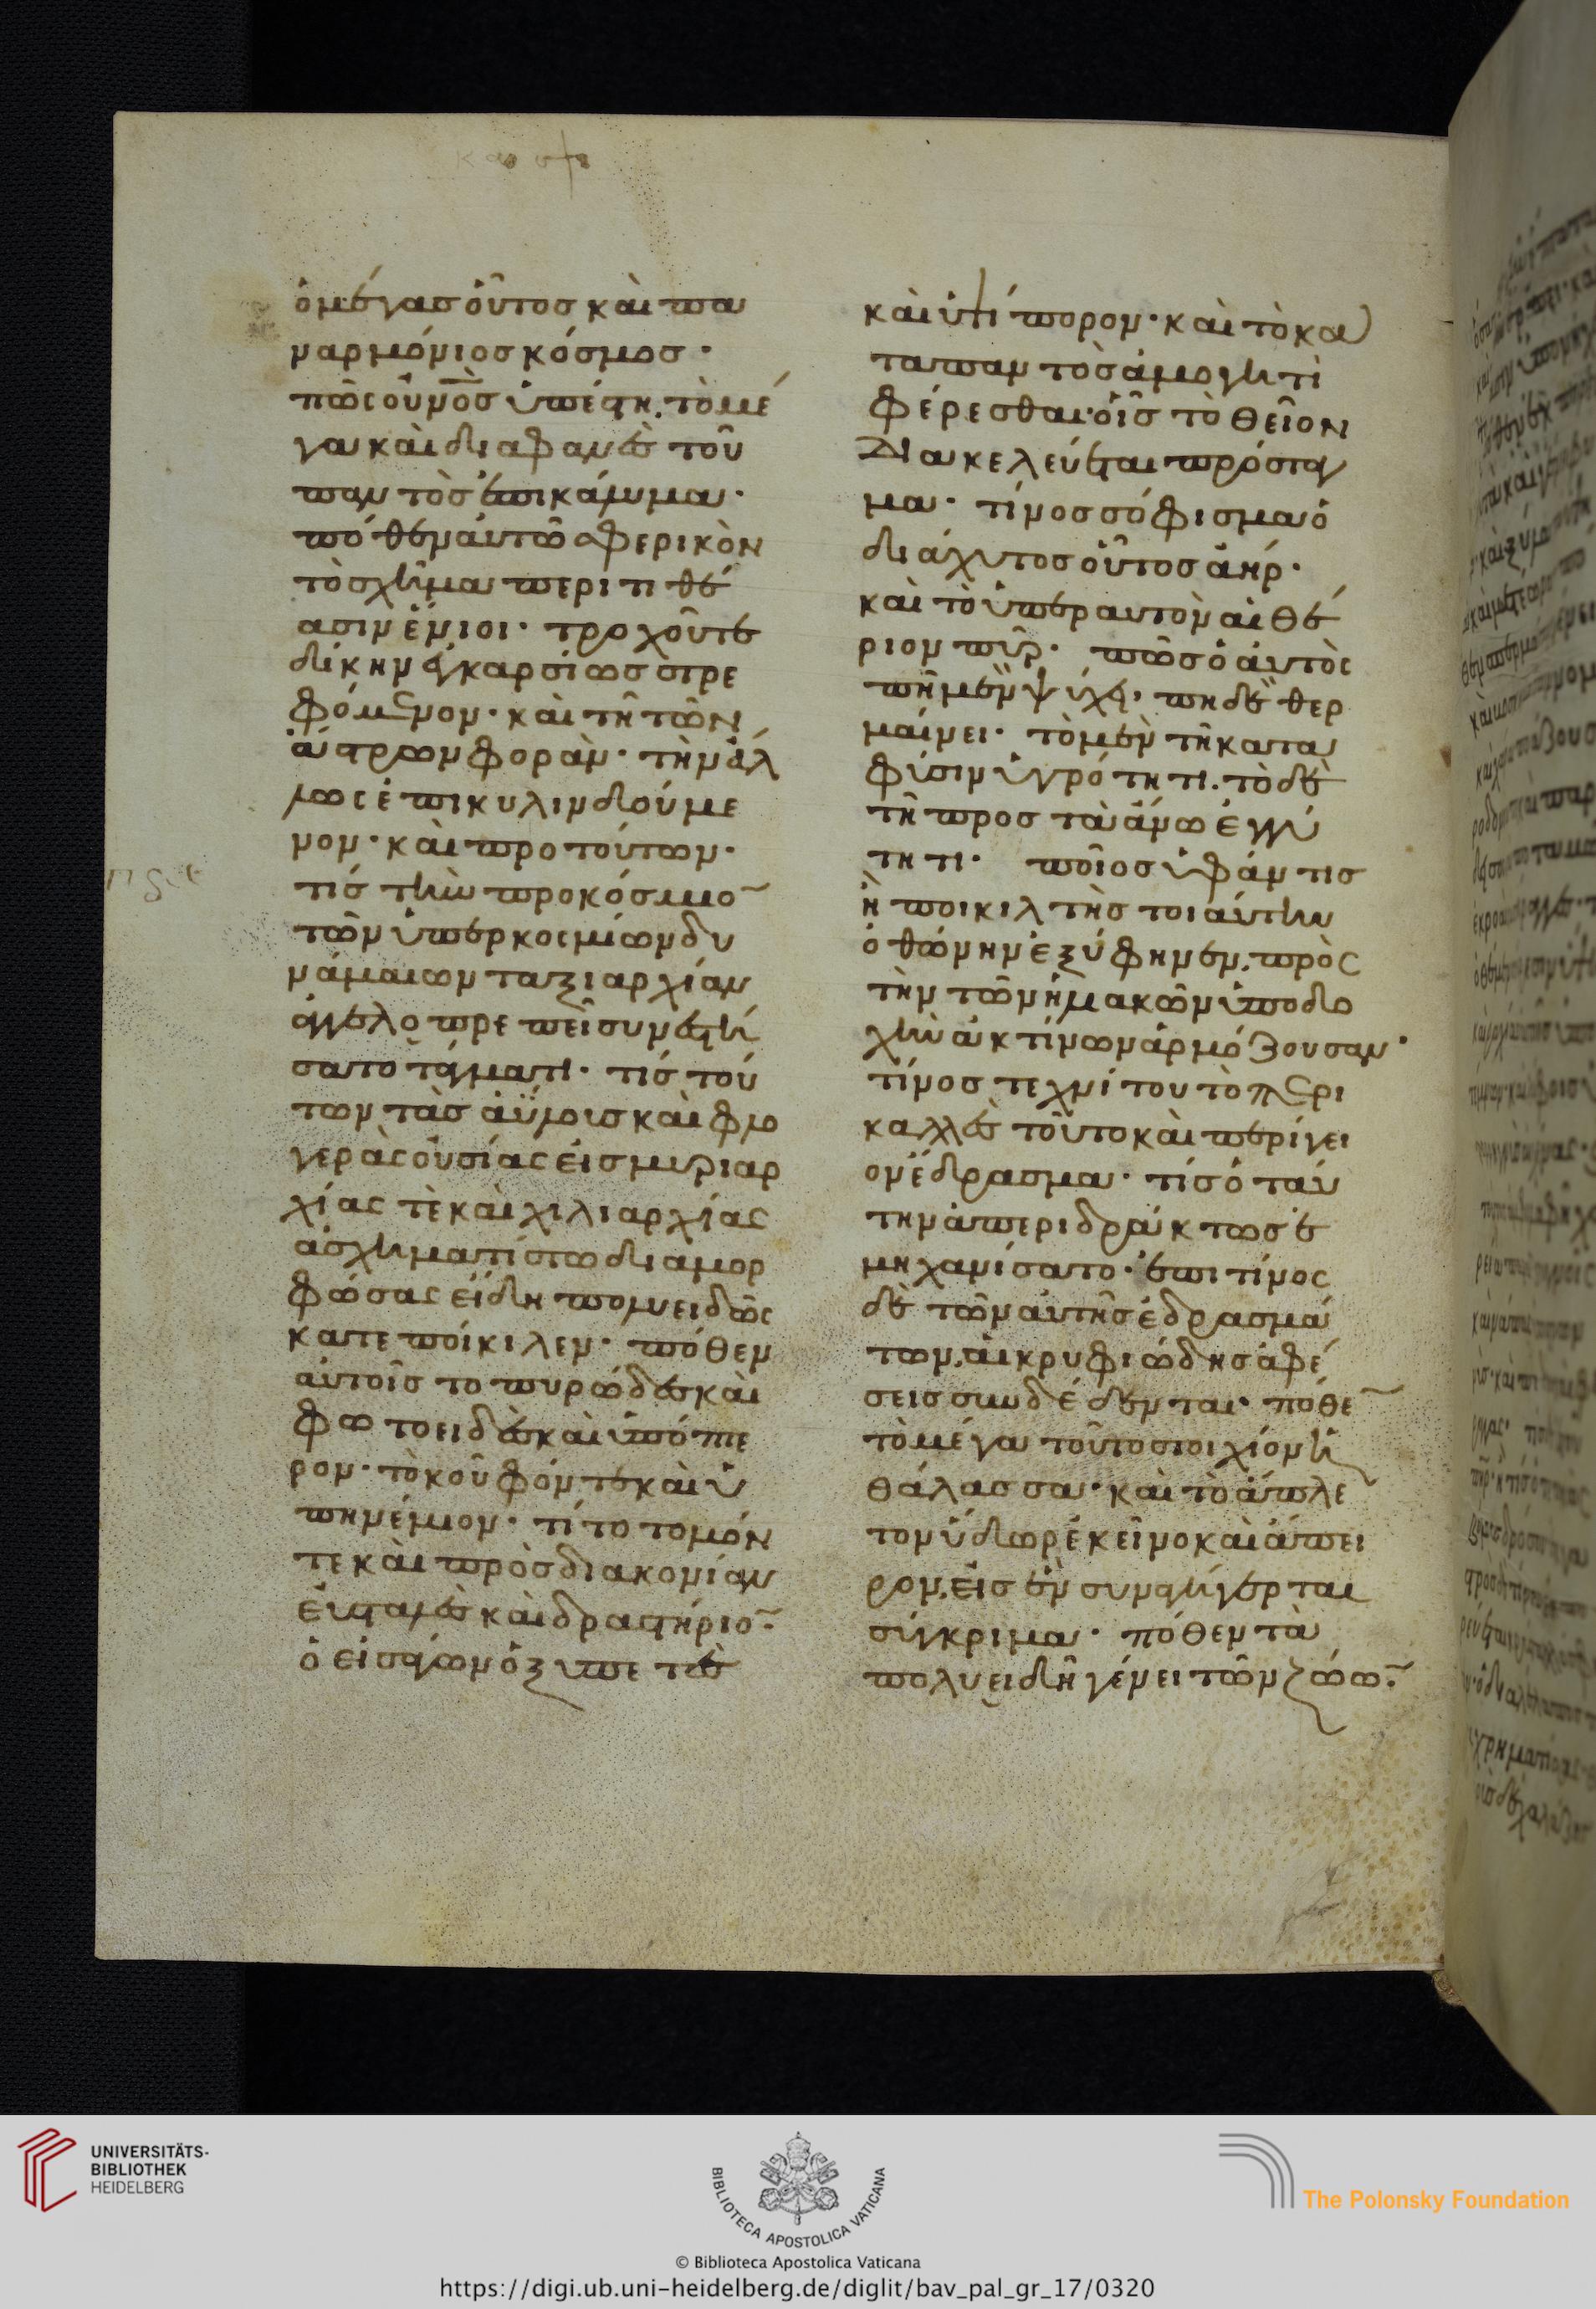 ὁ μέγας οὗτος καὶ πα
ναρμόνιος κόσμος·
πῶς οὐνὸς ὑπέστη. τὸ μέ
γα καὶ διαφανὲς τοῦ
παντὸς ἐπικάλυμμα·
πόθεν αὐτῶ σφερικὸν
τὸ σχῆμα περιτιθέ
ασιν ἔνιοι· τροχοῦ τε
δίκην ἐγκαρσίως στρε
φόμενον· καὶ τῆ τῶν
ἄστρων φορὰν· τὴν ἅλ
λως ἐπικυλινδούμε
νον· καὶ προτούτων·
τίς τὴν προκόσμιον
τῶν ὑπερκοσμίων δυ
νάμαιων ταξιαρχίαν
ἀγγέλοπρεπεῖ συνεστή
σατο τάγματι· τίς τού
των τὰς ἀΰλοις καὶ φλο
γερὰς οὐσίας εἰς μυριαρ
χίας τὲ καὶ χιλιαρχίας
ἀσχηματίστω διαμορ
φώσας εἴδη πολυειδῶς
κατεποίκιλεν· πόθεν
αὐτοῖς το πυρῶδες καὶ
φωτοειδὲς καὶ ὑπόπτε
ρον· τὸ κοῦφόν τε καὶ ὑ
πηνέμιον· τί το τομόν
τε καὶ πρὸς διακονίαν
εὐσταλὲς καὶ δραστήριον·
ὁ εἰσάγων ὀξυπετὲς
καὶ ὑψίπορον· καὶ τὸ κα
ταπαντὸς ἀμογητὶ
φέρεσθαι· οἷς τὸ θεῖον
διακελεύεται πρόσταγ
μα· τίνος σόφισμα ὁ
διάχυτος οὗτος ἀὴρ·
καὶ τὸ ὑπὲρ αυτὸν αἰθέ
ριον πῦρ· πῶς ὁ ἀυτὸς
πῆ μὲν ψύχει· πη δὲ θερ
μαίνει· τὸ μὲν τῆ κατα
φύσιν ὑγρότητι. τὸ δὲ
τῆ προς τὰ ἄνω ἐγγύ
τητι· ποῖος ὑφάντις
ἢ ποικιλτὴς τοιαύτην
ὀθώνην ἐξύφηνεν. πρὸς
τὴν τῶν ἡλιακῶν ὑποδο
χὴν ἀκτίνων ἁρμόζουσαν·
τίνος τεχνίτου τὸ περι
καλλὲς τοῦτο καὶ περίγει
ον ἕδρασμα· τίς ὁ ταύ
την ἀπεριδράκτως ἐ
μηχανίσατο· ἐπι τίνος
δὲ τῶν αὐτῆς ἑδρασμά
των. ἁι κρυφιώδης ἀφέ
σεις συνδέδενται· πόθεν
τὸ μέγα τοῦτο στοιχίον ἡ
θάλασσα· καὶ τὸ ἄπλε
τον ὕδωρ ἐκεῖνο καὶ ἄπει
ρον. εἰς ἓν συνηγέρται
σύγκριμα· πόθεν τὰ
πολυειδῆ γένει τῶν ζώων·
UNIVERSITÄTS-
BIBLIOTHEK
HEIDELBERG
BIBLIOTECA APOSTOLICA VATICANA
The Polonsky Foundation
© Biblioteca Apostolica Vaticana
https://digi.ub.uni-heidelberg.de/diglit/bav_pal_gr_17/0320